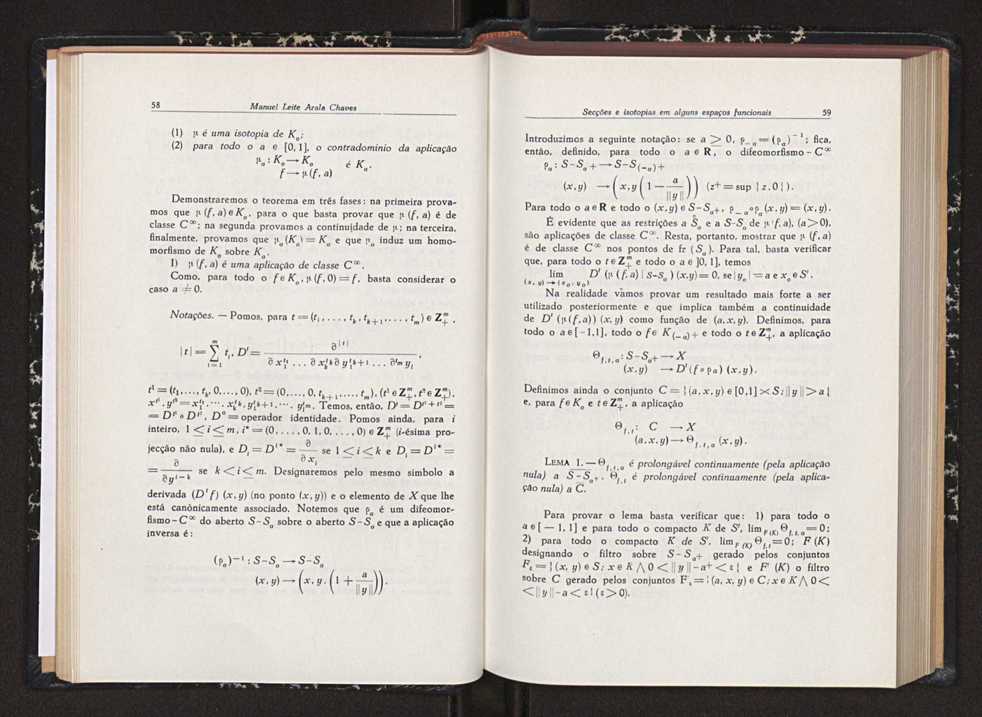 58 Manuel Leite Arala Chaves
(1) μ é uma isotopia de Kₒ;
(2) para todo o a ∈ [0,1], o contradomínio da aplicação
μₐ : Kₒ → Kₒ é Kₐ.
f → μ(f, a)
Demonstraremos o teorema em três fases: na primeira prova-
mos que μ (f, a) ∈ Kₐ, para o que basta provar que μ (f, a) é de
classe C∞; na segunda provamos a continuidade de μ; na terceira,
finalmente, provamos que μₐ(Kₒ) = Kₐ e que μₐ induz um homo-
morfismo de Kₒ sobre Kₐ.
1) μ (f, a) é uma aplicação de classe C∞.
Como, para todo o f ∈ Kₒ, μ(f, 0) = f, basta considerar o
caso a ≠ 0.
Notações. — Pomos, para t = (t₁, . . . , tₖ, tₖ₊₁, . . . . , tₘ) ∈ Z₊ᵐ ,
|t| = Σᵢ₌₁ᵐ tᵢ, Dᵗ = ∂^|t| / ∂x₁^t₁ . . . ∂xₖ^tₖ ∂y^tₖ₊₁ . . . ∂^tₘ yₗ ,
t¹ = (t₁, . . . , tₖ, 0, . . . , 0), t² = (0, . . . , 0, tₖ₊₁, . . . , tₘ), (t¹ ∈ Z₊ᵐ, t² ∈ Z₊ᵐ),
x^t¹ . y^t² = x₁^t₁ . ··· . xₖ^tₖ . y₁^tₖ₊₁ . ··· . yₗ^tₘ. Temos, então, Dᵗ = D^(t¹ + t²) =
= D^t¹ ∘ D^t², D⁰ = operador identidade. Pomos ainda, para i
inteiro, 1 ≤ i ≤ m, i* = (0, . . . , 0, 1, 0, . . . , 0) ∈ Z₊ᵐ (i-ésima pro-
jecção não nula), e Dᵢ = D^i* = ∂/∂xᵢ se 1 ≤ i ≤ k e Dᵢ = D^i* =
= ∂/∂y^(i−k) se k < i ≤ m. Designaremos pelo mesmo símbolo a
derivada (Dᵗ f) (x, y) (no ponto (x, y)) e o elemento de X que lhe
está canònicamente associado. Notemos que ρₐ é um difeomor-
fismo-C∞ do aberto S−Sₐ sobre o aberto S−Sₒ e que a aplicação
inversa é :
(ρₐ)⁻¹ : S−Sₒ → S−Sₐ
(x, y) → (x, y . (1 + a/||y||)).
Secções e isotopias em alguns espaços funcionais 59
Introduzimos a seguinte notação: se a ≥ 0, ρ₋ₐ = (ρₐ)⁻¹ ; fica,
então, definido, para todo o a ∈ R, o difeomorfismo-C∞
ρₐ : S−Sₐ₊ → S−S₍₋ₐ₎₊
(x, y) → (x, y (1 − a/||y||)) (z⁺ = sup {z, 0}).
Para todo o a ∈ R e todo o (x, y) ∈ S−Sₐ₊, ρ₋ₐ∘ρₐ (x, y) = (x, y).
É evidente que as restrições a S̊ₐ e a S−Sₐ de μ (f, a), (a > 0),
são aplicações de classe C∞. Resta, portanto, mostrar que μ (f, a)
é de classe C∞ nos pontos de fr (Sₐ). Para tal, basta verificar
que, para todo o t ∈ Z₊ᵐ e todo o a ∈ ]0, 1], temos
lim Dᵗ (μ (f, a) | S−Sₐ) (x, y) = 0, se |yₒ| = a e xₒ ∈ S′.
(x, y) → (xₒ, yₒ)
Na realidade vamos provar um resultado mais forte a ser
utilizado posteriormente e que implica também a continuidade
de Dᵗ (μ (f, a)) (x, y) como função de (a, x, y). Definimos, para
todo o a ∈ [−1,1], todo o f ∈ K₍₋ₐ₎₊ e todo o t ∈ Z₊ᵐ, a aplicação
Θ_f, t, a : S−Sₐ₊ → X
(x, y) → Dᵗ (f∘ρₐ) (x, y).
Definimos ainda o conjunto C = {(a, x, y) ∈ [0,1] × S; ||y|| > a}
e, para f ∈ Kₒ e t ∈ Z₊ᵐ, a aplicação
Θ_f, t : C → X
(a, x, y) → Θ_f, t, a (x, y).
LEMA 1. — Θ_f, t, a é prolongável continuamente (pela aplicação
nula) a S−Sₐ₊, Θ_f, t é prolongável continuamente (pela aplica-
ção nula) a C.
Para provar o lema basta verificar que: 1) para todo o
a ∈ [− 1, 1] e para todo o compacto K de S′, lim_F (K) Θ_f, t, a = 0;
2) para todo o compacto K de S′, lim_F′ (K) Θ_f, t = 0; F (K)
designando o filtro sobre S−Sₐ₊ gerado pelos conjuntos
F_ε = {(x, y) ∈ S; x ∈ K ⋀ 0 < ||y|| − a⁺ < ε} e F′ (K) o filtro
sobre C gerado pelos conjuntos F′_ε = {(a, x, y) ∈ C; x ∈ K ⋀ 0 <
< ||y|| − a < ε} (ε > 0).